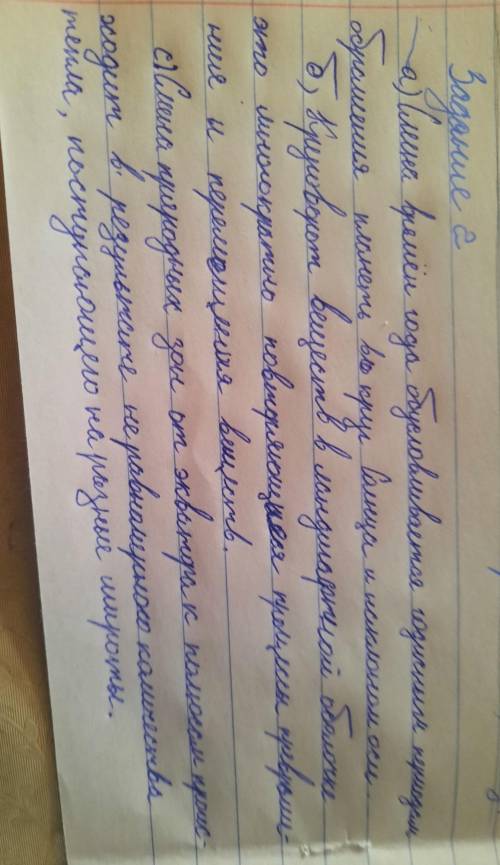 Задание 2
а) Смена времён года обусловливается годичным периодом
обращения планеты вокруг Солнца и наклоном оси.
б) Круговорот веществ в ландшафтной оболочке
это многократно повторяющиеся процессы превраще-
ния и перемещения веществ.
с) Смена природных зон от экватора к полюсам проис-
ходит в результате неравномерного количества
тепла, поступающего на разные широты.